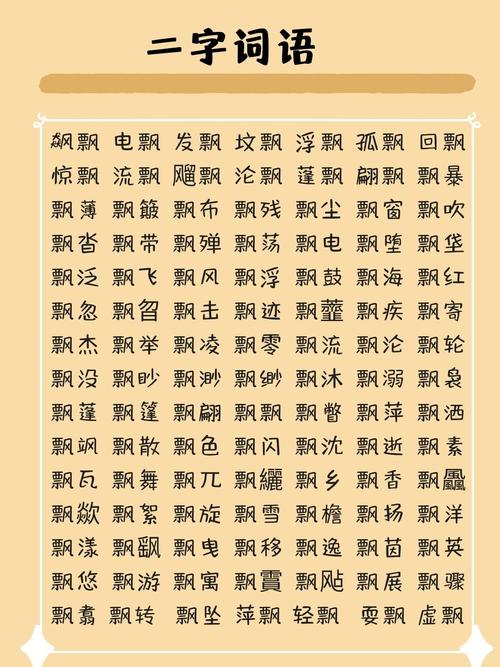 二字词语
飙飘 电飘 发飘 坟飘 浮飘 孤飘 回飘
惊飘 流飘 飀飘 沦飘 蓬飘 翩飘 飘暴
飘薄 飘簸 飘布 飘残 飘尘 飘窗 飘吹
飘沓 飘带 飘殚 飘荡 飘电 飘堕 飘垡
飘泛 飘飞 飘风 飘浮 飘鼓 飘海 飘红
飘忽 飘曶 飘击 飘迹 飘虀 飘疾 飘寄
飘杰 飘举 飘凌 飘零 飘流 飘沦 飘轮
飘没 飘眇 飘渺 飘缈 飘沐 飘溺 飘袅
飘蓬 飘篷 飘翩 飘飘 飘瞥 飘萍 飘洒
飘飒 飘散 飘色 飘闪 飘沈 飘逝 飘素
飘瓦 飘舞 飘兀 飘纚 飘乡 飘香 飘飍
飘歘 飘絮 飘旋 飘雪 飘檐 飘扬 飘洋
飘漾 飘飖 飘曳 飘移 飘逸 飘茵 飘英
飘悠 飘游 飘寓 飘霣 飘飐 飘展 飘骤
飘翥 飘转 飘坠 萍飘 轻飘 耍飘 虚飘